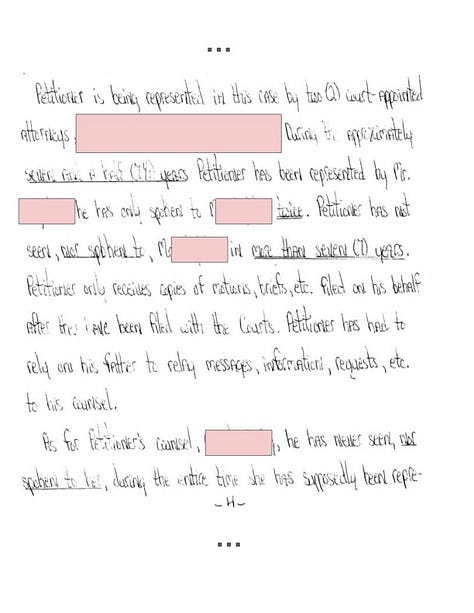 Petitioner is being represented in this case by two (2) court-appointed
attorneys, During the approximately
seven and a half (7½) years Petitioner has been represented by Mr.
he has only spoken to twice. Petitioner has not
seen, nor spoken to, in more than seven (7) years.
Petitioner only receives copies of motions, briefs, etc. filed on his behalf
after they have been filed with the Courts. Petitioner has had to
rely on his father to relay messages, information, requests, etc.
to his counsel.
As for Petitioner's counsel, , he has never seen, nor
spoken to her, during the entire time she has supposedly been repre-
-4-